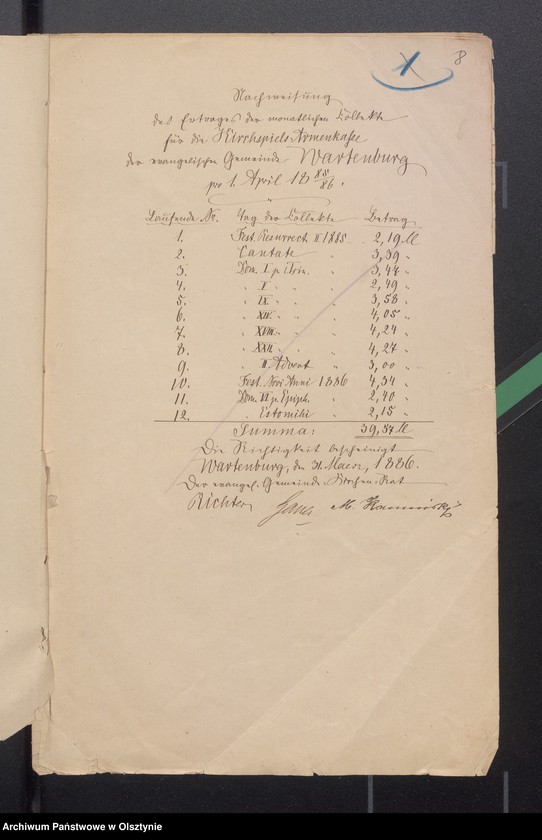 8
Nachweisung
des Ertrages der monatlichen Collekte
für die Kirchspiels-Armenkasse
der evangelischen Gemeinde Wartenburg
pro 1. April 1885/86.
Laufende Nr. Tag der Collekte Betrag
1. Fest. Resurrect. II 1885 2,19 M
2. Cantate " 3,39 "
3. Dom. I p. Trin. " 3,47 "
4. " V " " " 2,49 "
5. " IX " " " 3,58 "
6. " XIV " " " 4,05 "
7. " XVIII " " " 4,24 "
8. " XXII " " " 4,27 "
9. " II Advent " 3,00 "
10. Fest. Novi Anni 1886 4,34 "
11. Dom. VI p. Epiph. " 2,40 "
12. " Estomihi " 2,15 "
Summa: 39,57 M
Die Richtigkeit bescheinigt
Wartenburg, den 31. Maerz, 1886.
Der evangel. Gemeinde-Kirchen-Rat
Richter M. Kaminski
Archiwum Państwowe w Olsztynie